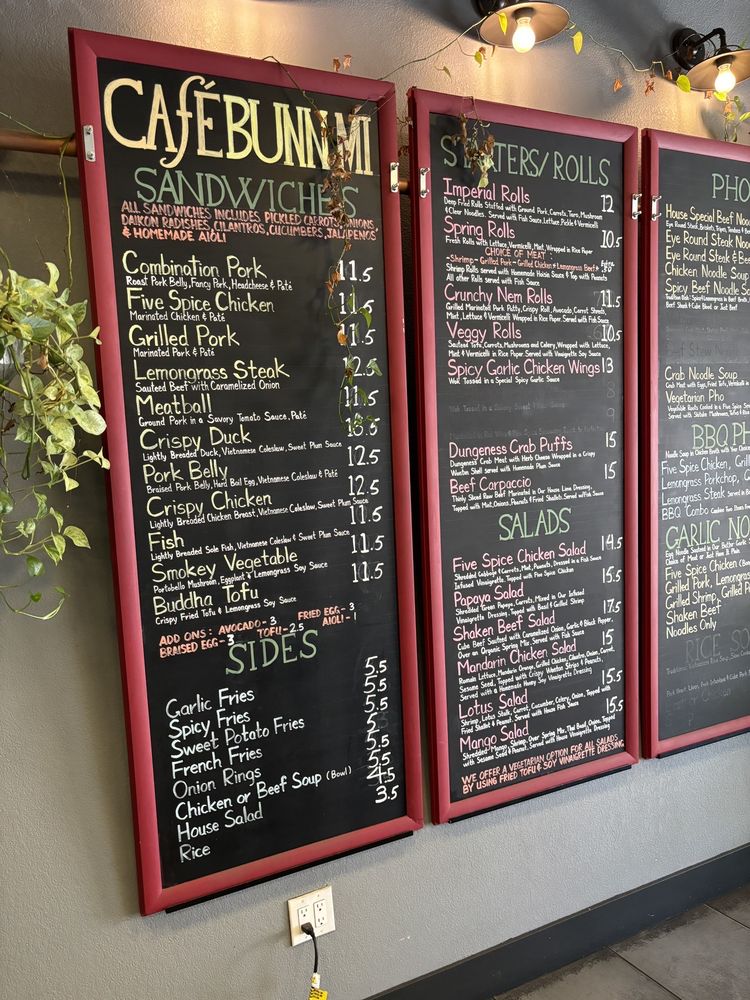 CAFÉ BUNN MI
SANDWICHES
ALL SANDWICHES INCLUDES PICKLED CARROTS, ONIONS,
DAIKON RADISHES, CILANTROS, CUCUMBERS, JALAPENOS
& HOMEMADE AIOLI
Combination Pork 11.5
Roast Pork Belly, Fancy Pork, Headcheese & Paté
Five Spice Chicken 11.5
Marinated Chicken & Paté
Grilled Pork 11.5
Marinated Pork & Paté
Lemongrass Steak 12.5
Sauteed Beef with Caramelized Onion
Meatball 11.5
Ground Pork in a Savory Tomato Sauce, Paté
Crispy Duck 13.5
Lightly Breaded Duck, Vietnamese Coleslaw, Sweet Plum Sauce
Pork Belly 12.5
Braised Pork Belly, Hard Boil Egg, Vietnamese Coleslaw & Paté
Crispy Chicken 12.5
Lightly Breaded Chicken Breast, Vietnamese Coleslaw, Sweet Plum Sauce
Fish 11.5
Lightly Breaded Sole Fish, Vietnamese Coleslaw & Sweet Plum Sauce
Smokey Vegetable 11.5
Portobello Mushroom, Eggplant & Lemongrass Soy Sauce
Buddha Tofu 11.5
Crispy Fried Tofu & Lemongrass Soy Sauce
ADD ONS: AVOCADO - 3 FRIED EGG - 3
BRAISED EGG - 3 TOFU - 2.5 AIOLI - 1
SIDES
Garlic Fries 5.5
Spicy Fries 5.5
Sweet Potato Fries 5.5
French Fries 5
Onion Rings 5.5
Chicken or Beef Soup (Bowl)
House Salad 4.5
Rice 3.5
STARTERS/ROLLS
Imperial Rolls 12
Deep Fried Rolls Stuffed with Ground Pork, Carrots, Taro, Mushroom
& Clear Noodles. Served with Fish Sauce, Lettuce, Pickle & Vermicelli
Spring Rolls 10.5
Fresh Rolls with Lettuce, Vermicelli, Mint, Wrapped in Rice Paper
CHOICE OF MEAT:
-Shrimp - Grilled Pork - Grilled Chicken - Lemongrass Beef +
Shrimp Rolls served with Homemade Hoisin Sauce & Top with Peanuts
All other Rolls served with Fish Sauce
Crunchy Nem Rolls 11.5
Grilled Marinated Pork Patty, Crispy Roll, Avocado, Carrot Shreds,
Mint, Lettuce & Vermicelli Wrapped in Rice Paper. Served with Fish Sauce
Veggy Rolls 10.5
Sauteed Tofu, Carrots, Mushrooms and Celery, Wrapped with Lettuce,
Mint & Vermicelli in Rice Paper. Served with Vinaigrette Soy Sauce
Spicy Garlic Chicken Wings 13
Wok Tossed in a Special Spicy Garlic Sauce
Dungeness Crab Puffs 15
Dungeness Crab Meat with Herb Cheese Wrapped in a Crispy
Wonton Shell served with Homemade Plum Sauce
Beef Carpaccio 15
Thinly Sliced Raw Beef Marinated in Our House Lime Dressing,
Topped with Mint, Onions, Peanuts & Fried Shallots. Served with Fish Sauce
SALADS
Five Spice Chicken Salad 14.5
Shredded Cabbage & Carrots, Mint, Peanuts, Dressed in a Fish Sauce
Infused Vinaigrette. Topped with Five Spice Chicken
Papaya Salad 15.5
Shredded Green Papaya, Carrots, Mixed in Our Infused
Vinaigrette Dressing. Topped with Basil & Grilled Shrimp
Shaken Beef Salad 17.5
Cube Beef Sauteed with Caramelized Onion, Garlic & Black Pepper,
Over an Organic Spring Mix. Served with Fish Sauce
Mandarin Chicken Salad 15
Romaine Lettuce, Mandarin Orange, Grilled Chicken, Cilantro, Onion, Carrot,
Sesame Seed, Topped with Crispy Wonton Strips & Peanuts,
Served with a Homemade Honey Soy Vinaigrette Dressing
Lotus Salad 15.5
Shrimp, Lotus Stalk, Carrot, Cucumber, Celery, Onion, Topped with
Fried Shallot & Peanut. Served with House Fish Sauce
Mango Salad 15.5
Shredded Mango, Shrimp Over Spring Mix, Thai Basil, Onion, Topped
with Sesame Seed & Peanut. Served with House Vinaigrette Dressing
WE OFFER A VEGETARIAN OPTION FOR ALL SALADS
BY USING FRIED TOFU & SOY VINAIGRETTE DRESSING
PHO
House Special Beef Noo
Eye Round Steak, Brisket, Tripe, Tendon &
Eye Round Steak Noo
Eye Round Steak & B
Chicken Noodle Soup
Spicy Beef Noodle So
Crab Noodle Soup
Crab Meat with Eggs, Fried Tofu, Vermicelli
Vegetarian Pho
BBQ PH
Five Spice Chicken, Grill
Lemongrass Porkchop, G
Lemongrass Steak Served in
BBQ Combo
GARLIC NO
Choice of Meat or Just Have It Plain
Five Spice Chicken
Grilled Pork, Lemongra
Grilled Shrimp, Grilled
Shaken Beef
Noodles Only
RICE